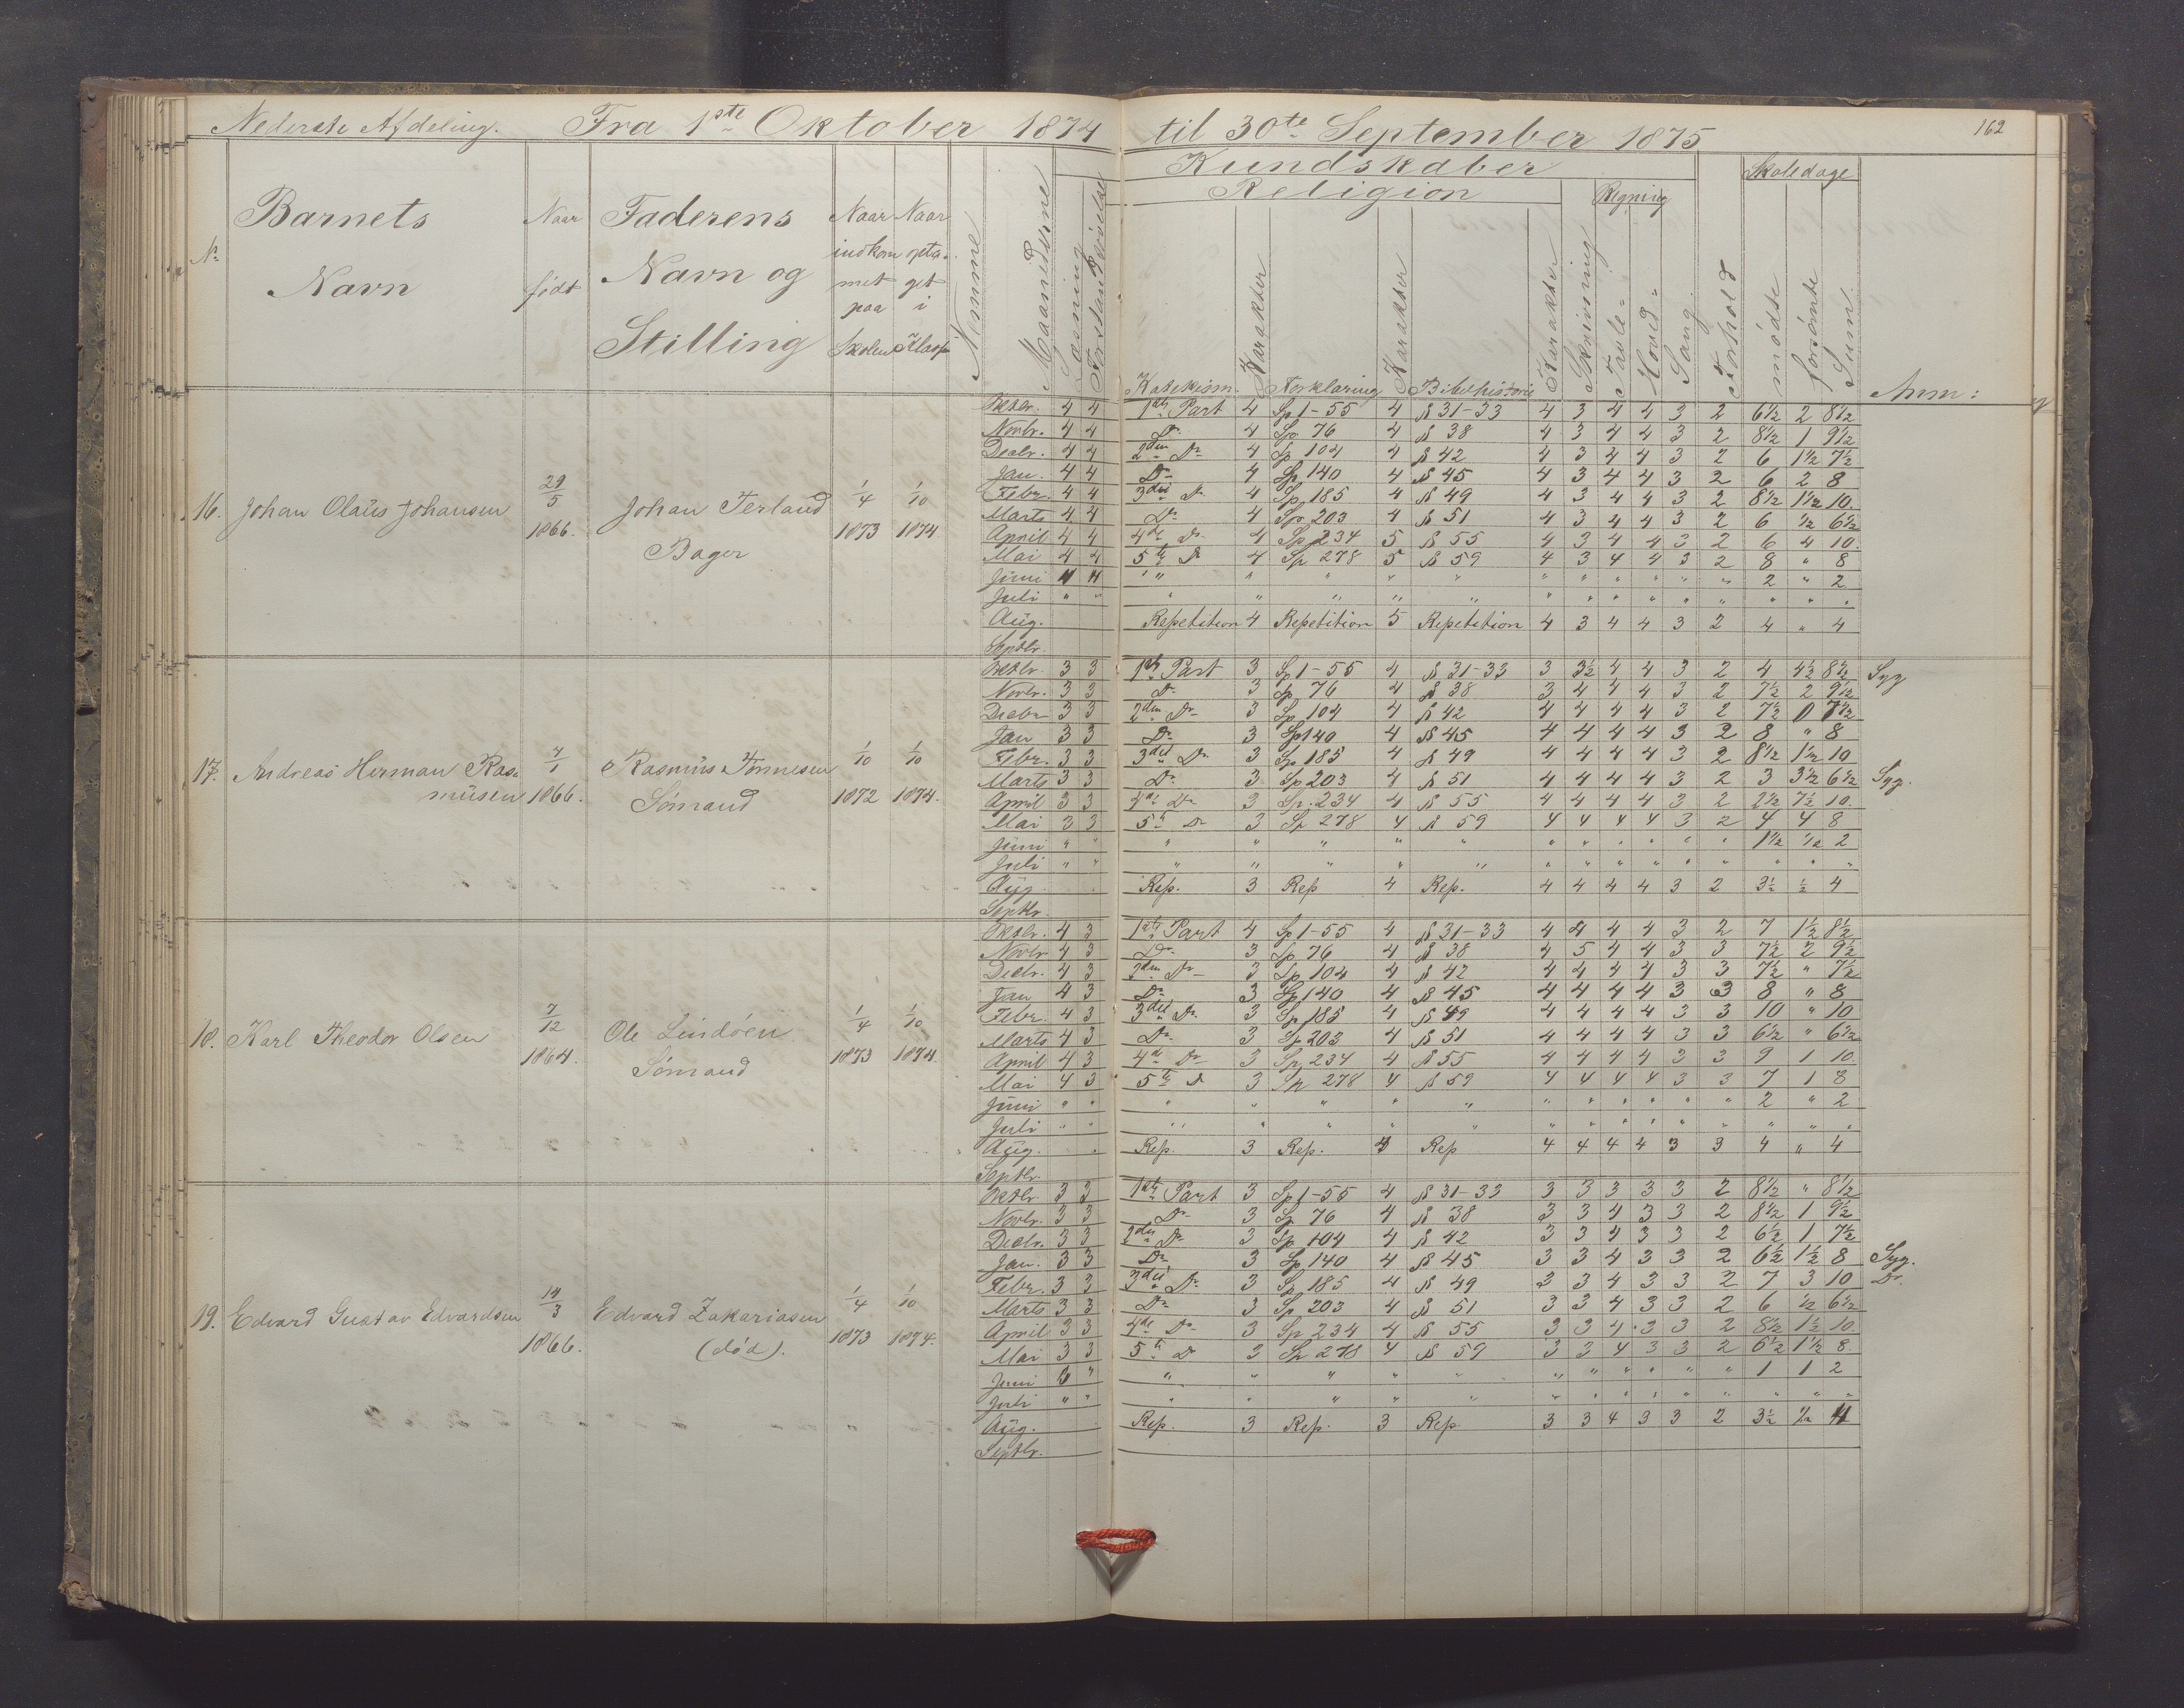 Nederste Afdeling. Fra 1ste Oktober 1874 til 30te September 1875 162
Kundskaber
Religion Regning Skoledage
No Barnets Navn Naar født Faderens Navn og Stilling Naar indkommet paa Skolen Naar optaget i Klasse Nemme Maanederne Læsning Forstandsøvelse
Katekism. Karakter Forklaring Karakter Bibelhistorie Karakter Skrivning Tavle- Hoved- Sang Forhold mødte forsømte Sum. Anm:
16. Johan Olaüs Johansen 29/5 1866. Johan Terland Bager 1/4 1873 1/10 1874.
Oktbr. 4 4 1ste Part 4 Sp 1-55 4 § 31-33 4 3 4 4 3 2 6½ 2 8½
Novbr. 4 4 Do 4 Sp 76 4 § 38 4 3 4 4 3 2 8½ 1 9½
Decbr. 4 4 2den Do 4 Sp 104 4 § 42 4 3 4 4 3 2 6 1½ 7½
Jan. 4 4 Do 4 Sp 140 4 § 45 4 3 4 4 3 2 6 2 8
Febr. 4 4 3die Do 4 Sp 185 4 § 49 4 3 4 4 3 2 8½ 1½ 10.
Marts 4 4 Do 4 Sp 203 4 § 51 4 3 4 4 3 2 6 ½ 6½
April 4 4 4de Do 4 Sp 234 5 § 55 4 3 4 4 3 2 6 4 10.
Mai 4 4 5te Do 4 Sp 278 5 § 59 4 3 4 4 3 2 8 " 8
Juni " " " " " " " " " " " " " 2 " 2
Juli " " " " " " " " " " " " " " " "
Aüg. Repetition 4 Repetition 5 Repetition 4 3 4 4 3 2 4 " 4
Septbr.
17. Andreas Herman Rasmüsen 7/1 1866. Rasmüs Tønnesen Sømand 1/10 1872 1/10 1874.
Oktbr. 3 3 1ste Part 3 Sp 1-55 4 § 31-33 3 3½ 4 4 3 2 4 4½ 8½ Syg
Novbr. 3 3 Do 3 Sp 76 4 § 38 3 4 4 4 3 2 7½ 2 9½
Decbr 3 3 2den Do 3 Sp 104 4 § 42 4 4 4 4 3 2 7½ 0 7½
Jan 3 3 Do 3 Sp 140 4 § 45 4 4 4 4 3 2 8 " 8
Febr. 3 3 3die Do 3 Sp 185 4 § 49 4 4 4 4 3 2 8½ 1½ 10
Marts 3 3 Do 3 Sp 203 4 § 51 4 4 4 4 3 2 3 3½ 6½ Syg.
April 3 3 4de Do 3 Sp. 234 4 § 55 4 4 4 4 3 2 2½ 7½ 10.
Mai 3 3 5te Do 3 Sp 278 4 § 59 4 4 4 4 3 2 4 4 8
Juni " " " " " " " " " " " " " 1½ ½ 2
Juli " " " " " " " " " " " " " " " "
Aüg Rep. 3 Rep 4 Rep. 4 4 4 4 3 2 3½ ½ 4
Septbr.
18. Karl Theodor Olsen 7/12 1864. Ole Lindøen Sømand 1/4 1873 1/10 1874.
Oktbr. 4 3 1ste Part 4 Sp 1-55 4 § 31-33 4 4 4 4 3 2 7 1½ 8½
Novbr 4 3 Do 3 Sp 76 4 § 38 4 5 4 4 3 3 7½ 2 9½
Decbr. 4 3 2den Do 3 Sp 104 4 § 42 4 4 4 4 3 3 7½ " 7½
Jan 4 3 Do 3 Sp 140 4 § 45 4 4 4 4 3 3 8 " 8
Febr. 4 3 3die Do 3 Sp 185 4 § 49 4 4 4 4 3 3 10 " 10
Marts 4 3 Do 3 Sp 203 4 § 51 4 4 4 4 3 3 6½ " 6½
April 4 3 4de Do 3 Sp 234 4 § 55 4 4 4 4 3 3 9 1 10.
Mai 4 3 5te Do 3 Sp 278 4 § 59 4 4 4 4 3 3 7 1 8
Juni " " " " " " " " " " " " " 2 " 2
Juli " " " " " " " " " " " " " " " "
Aüg. Rep. 3 Rep. 4 Rep 4 4 4 4 3 3 4 " 4
Septbr.
19. Edvard Gustav Edvardsen 14/3 1866. Edvard Zakariasen (død). 1/4 1873 1/10 1874.
Oktbr. 3 3 1ste Part 3 Sp 1-55 4 § 31-33 3 3 3 3 3 2 8½ " 8½
Novbr. 3 3 Do 3 Sp 76 4 § 38 3 3 4 3 3 2 8½ 1 9½
Decbr. 3 3 2den Do 3 Sp 104 4 § 42 3 3 4 3 3 2 6½ 1 7½
Jan. 3 3 Do 3 Sp 140 4 § 45 3 3 4 3 3 2 6½ 1½ 8 Syg.
Febr. 3 3 3die Do 3 Sp 185 4 § 49 3 3 4 3 3 2 7 3 10 Do.
Marts 3 3 Do 3 Sp 203 4 § 51 3 3 4 3 3 2 6 ½ 6½
April 3 3 4de Do 3 Sp 234 4 § 55 3 3 4 3 3 2 8½ 1½ 10.
Mai 3 3 5te Do 3 Sp 278 4 § 59 3 3 4 3 3 2 6½ 1½ 8.
Juni " " " " " " " " " " " " 1 1 2
Juli " " " " " " " " " " " " " " " "
Aüg. Rep. 3 Rep. 3 Rep 3 3 4 3 3 2 3½ ½ 4
Septbr.